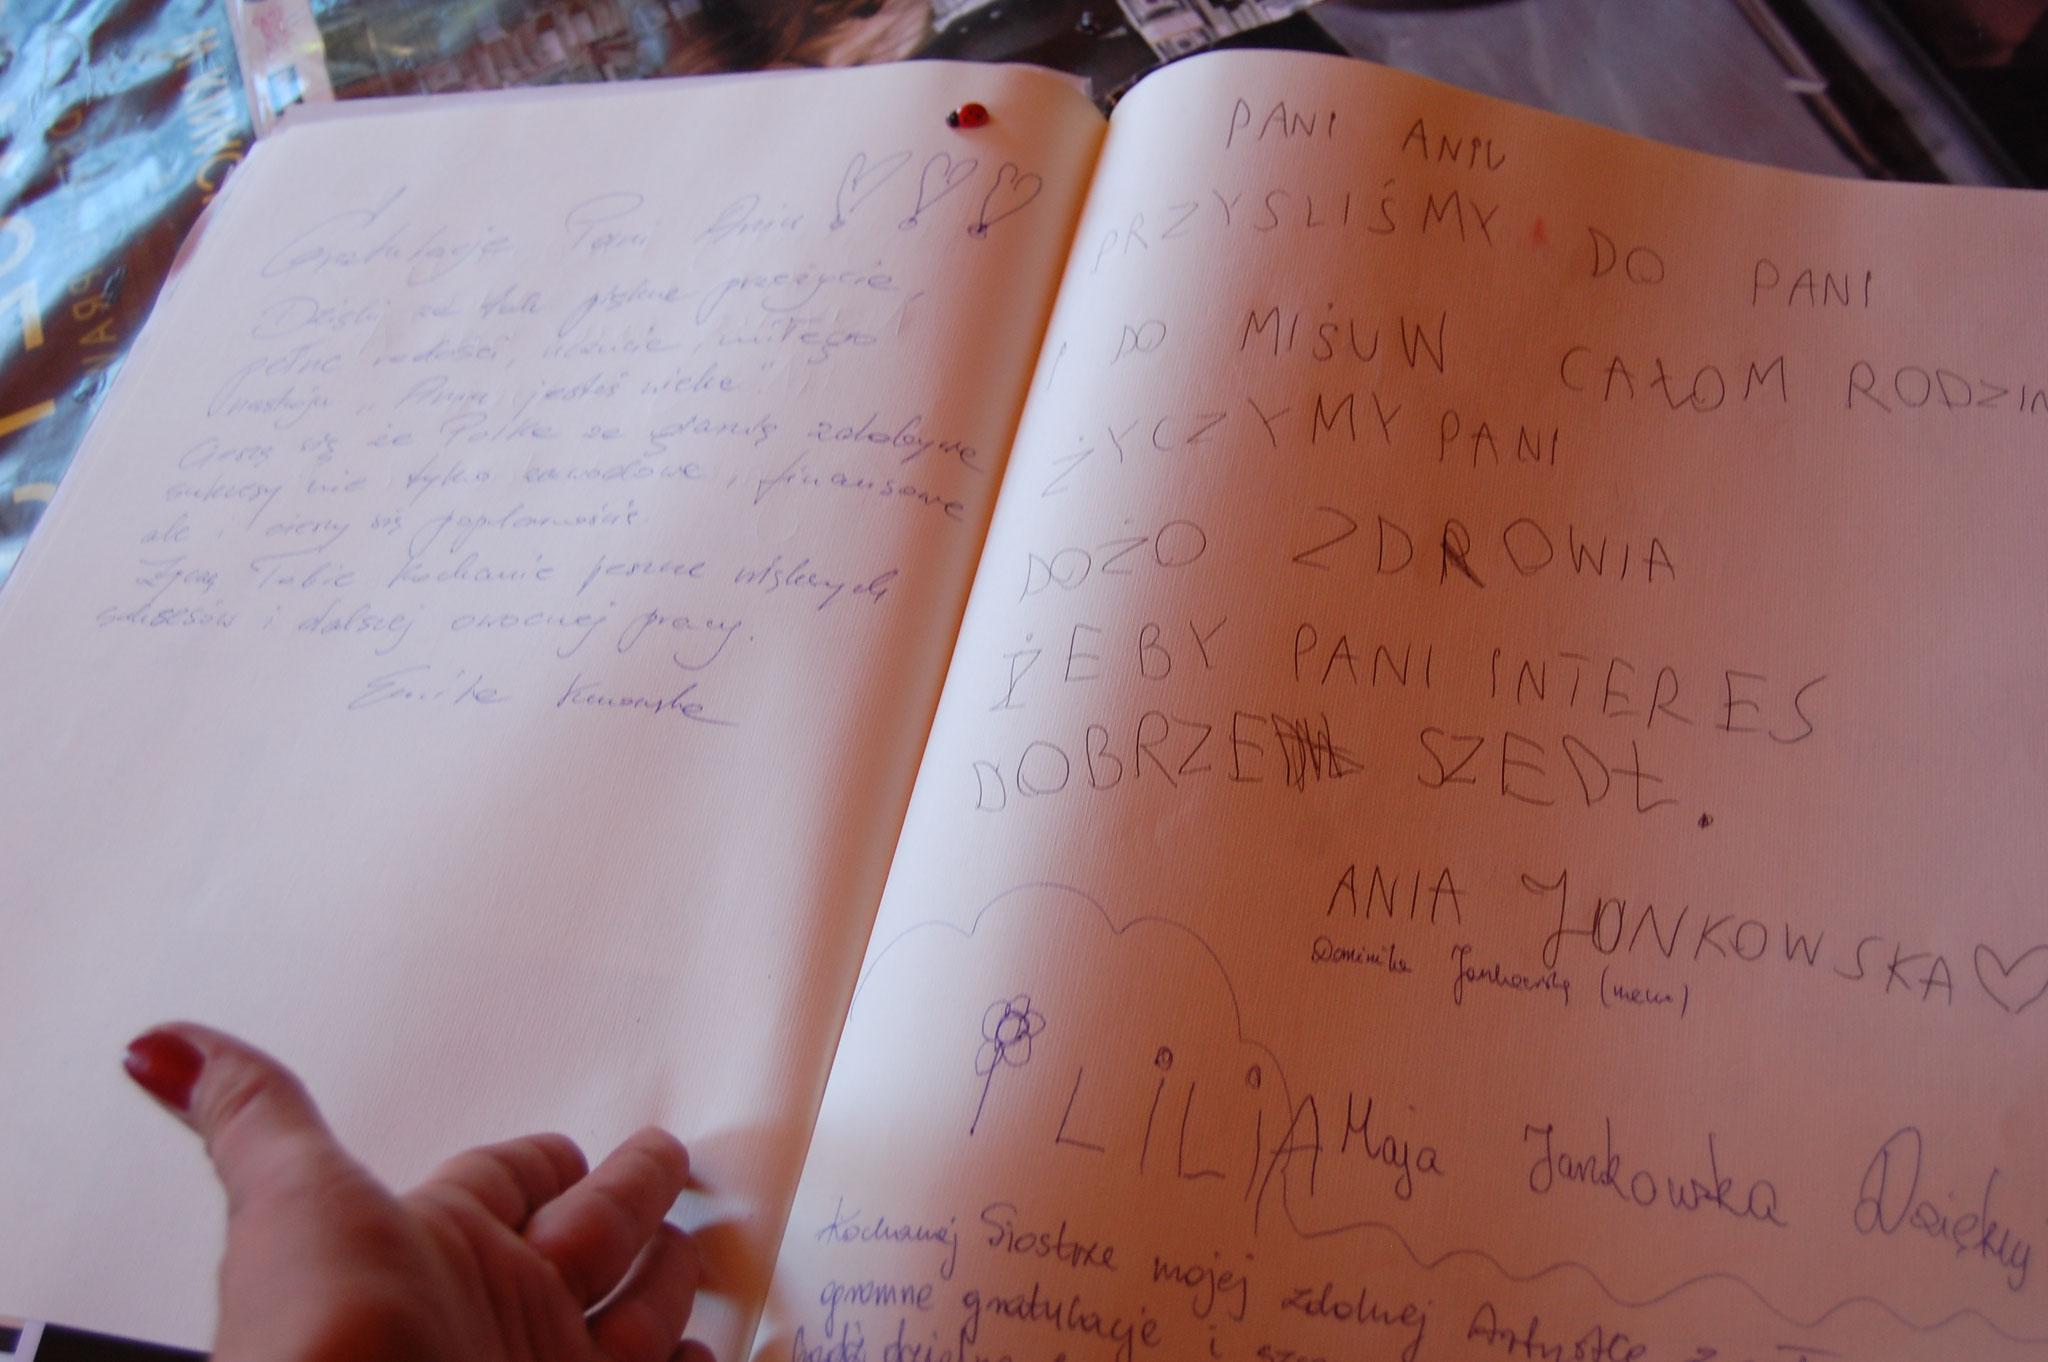 Gratulacje Pani Aniu
Dzięki za tak piękne przeżycie,
pełne radości, uczucie, miłego
nastroju „Aniu jesteś wielka"
Cieszę się że Polka za granicą zdobywa
sukcesy nie tylko zawodowe, finansowe
ale i cieszy się popularnością.
Życzę Tobie Kochanie jeszcze większych
sukcesów i dalszej owocnej pracy.
Emilia
PANI ANIU
PRZYSLIŚMY DO PANI
I DO MIŚUW CAŁOM RODZIN
ŻYCZYMY PANI
DOŻO ZDROWIA
ŻEBY PANI INTERES
DOBRZE SZEDŁ.
ANIA JONKOWSKA
Dominika Jankowska (mama)
LILIA Maja Jankowska Dziękuj
Kochanej Siostrze mojej zdolnej Artystce
ogromne gratulacje i
bądź